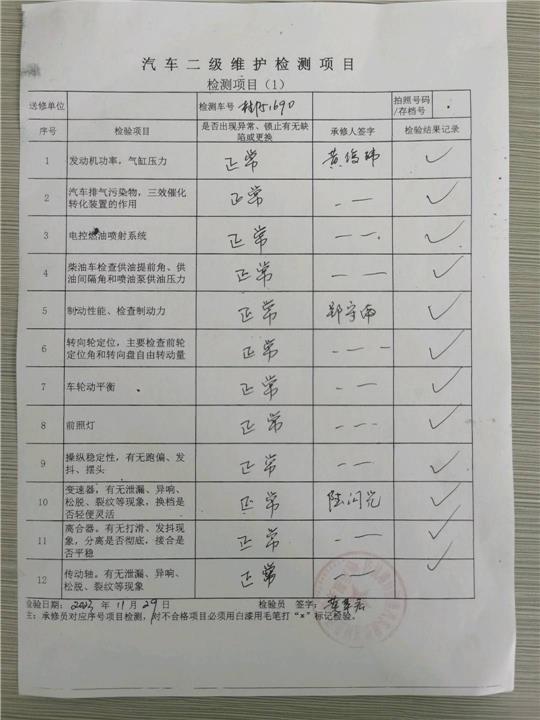 汽车二级维护检测项目
检测项目（1）
送修单位 检测车号 拍照号码/存档号
序号 检验项目 是否出现异常、锁止有无缺陷或更换 承修人签字 检验结果记录
1 发动机功率，气缸压力 正常 ✓
2 汽车排气污染物，三效催化
转化装置的作用 正常 — — ✓
3 电控燃油喷射系统 正常 — — ✓
4 柴油车检查供油提前角、供
油间隔角和喷油泵供油压力 正常 — — ✓
5 制动性能、检查制动力 正常 ✓
6 转向轮定位，主要检查前轮
定位角和转向盘自由转动量 正常 — — ✓
7 车轮动平衡 正常 — — ✓
8 前照灯 正常 — — ✓
9 操纵稳定性，有无跑偏、发
抖、摆头 正常 — — ✓
10 变速器。有无泄漏、异响、
松脱、裂纹等现象，换档是
否轻便灵活 正常 陆闪光 ✓
11 离合器。有无打滑、发抖现
象，分离是否彻底，接合是
否平稳 正常 — — ✓
12 传动轴。有无泄漏、异响、
松脱、裂纹等现象 正常 — —
检验日期：2023 年 11 月 29 日 检验员 签字：
注：承修员对应序号项目检测，对不合格项目必须用白漆用毛笔打“×”标记检验。